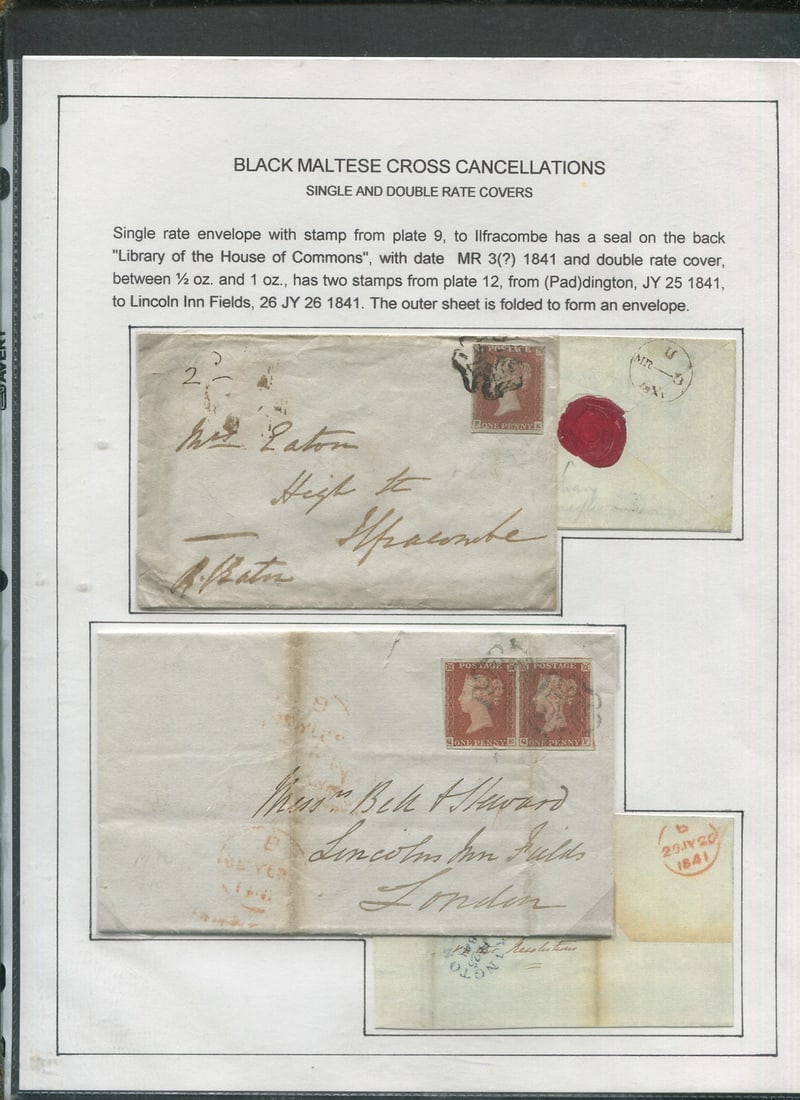 BLACK MALTESE CROSS CANCELLATIONS
SINGLE AND DOUBLE RATE COVERS
Single rate envelope with stamp from plate 9, to Ilfracombe has a seal on the back
"Library of the House of Commons", with date MR 3(?) 1841 and double rate cover,
between ½ oz. and 1 oz., has two stamps from plate 12, from (Pad)dington, JY 25 1841,
to Lincoln Inn Fields, 26 JY 26 1841. The outer sheet is folded to form an envelope.
AVERY
POSTAGE
ONE PENNY
MR
Mrs Eaton
High St
Ilfracombe
POSTAGE POSTAGE
ONE PENNY ONE PENNY
Messrs Bell & Steward
Lincolns Inn Fields
London
B
26JY26
1841